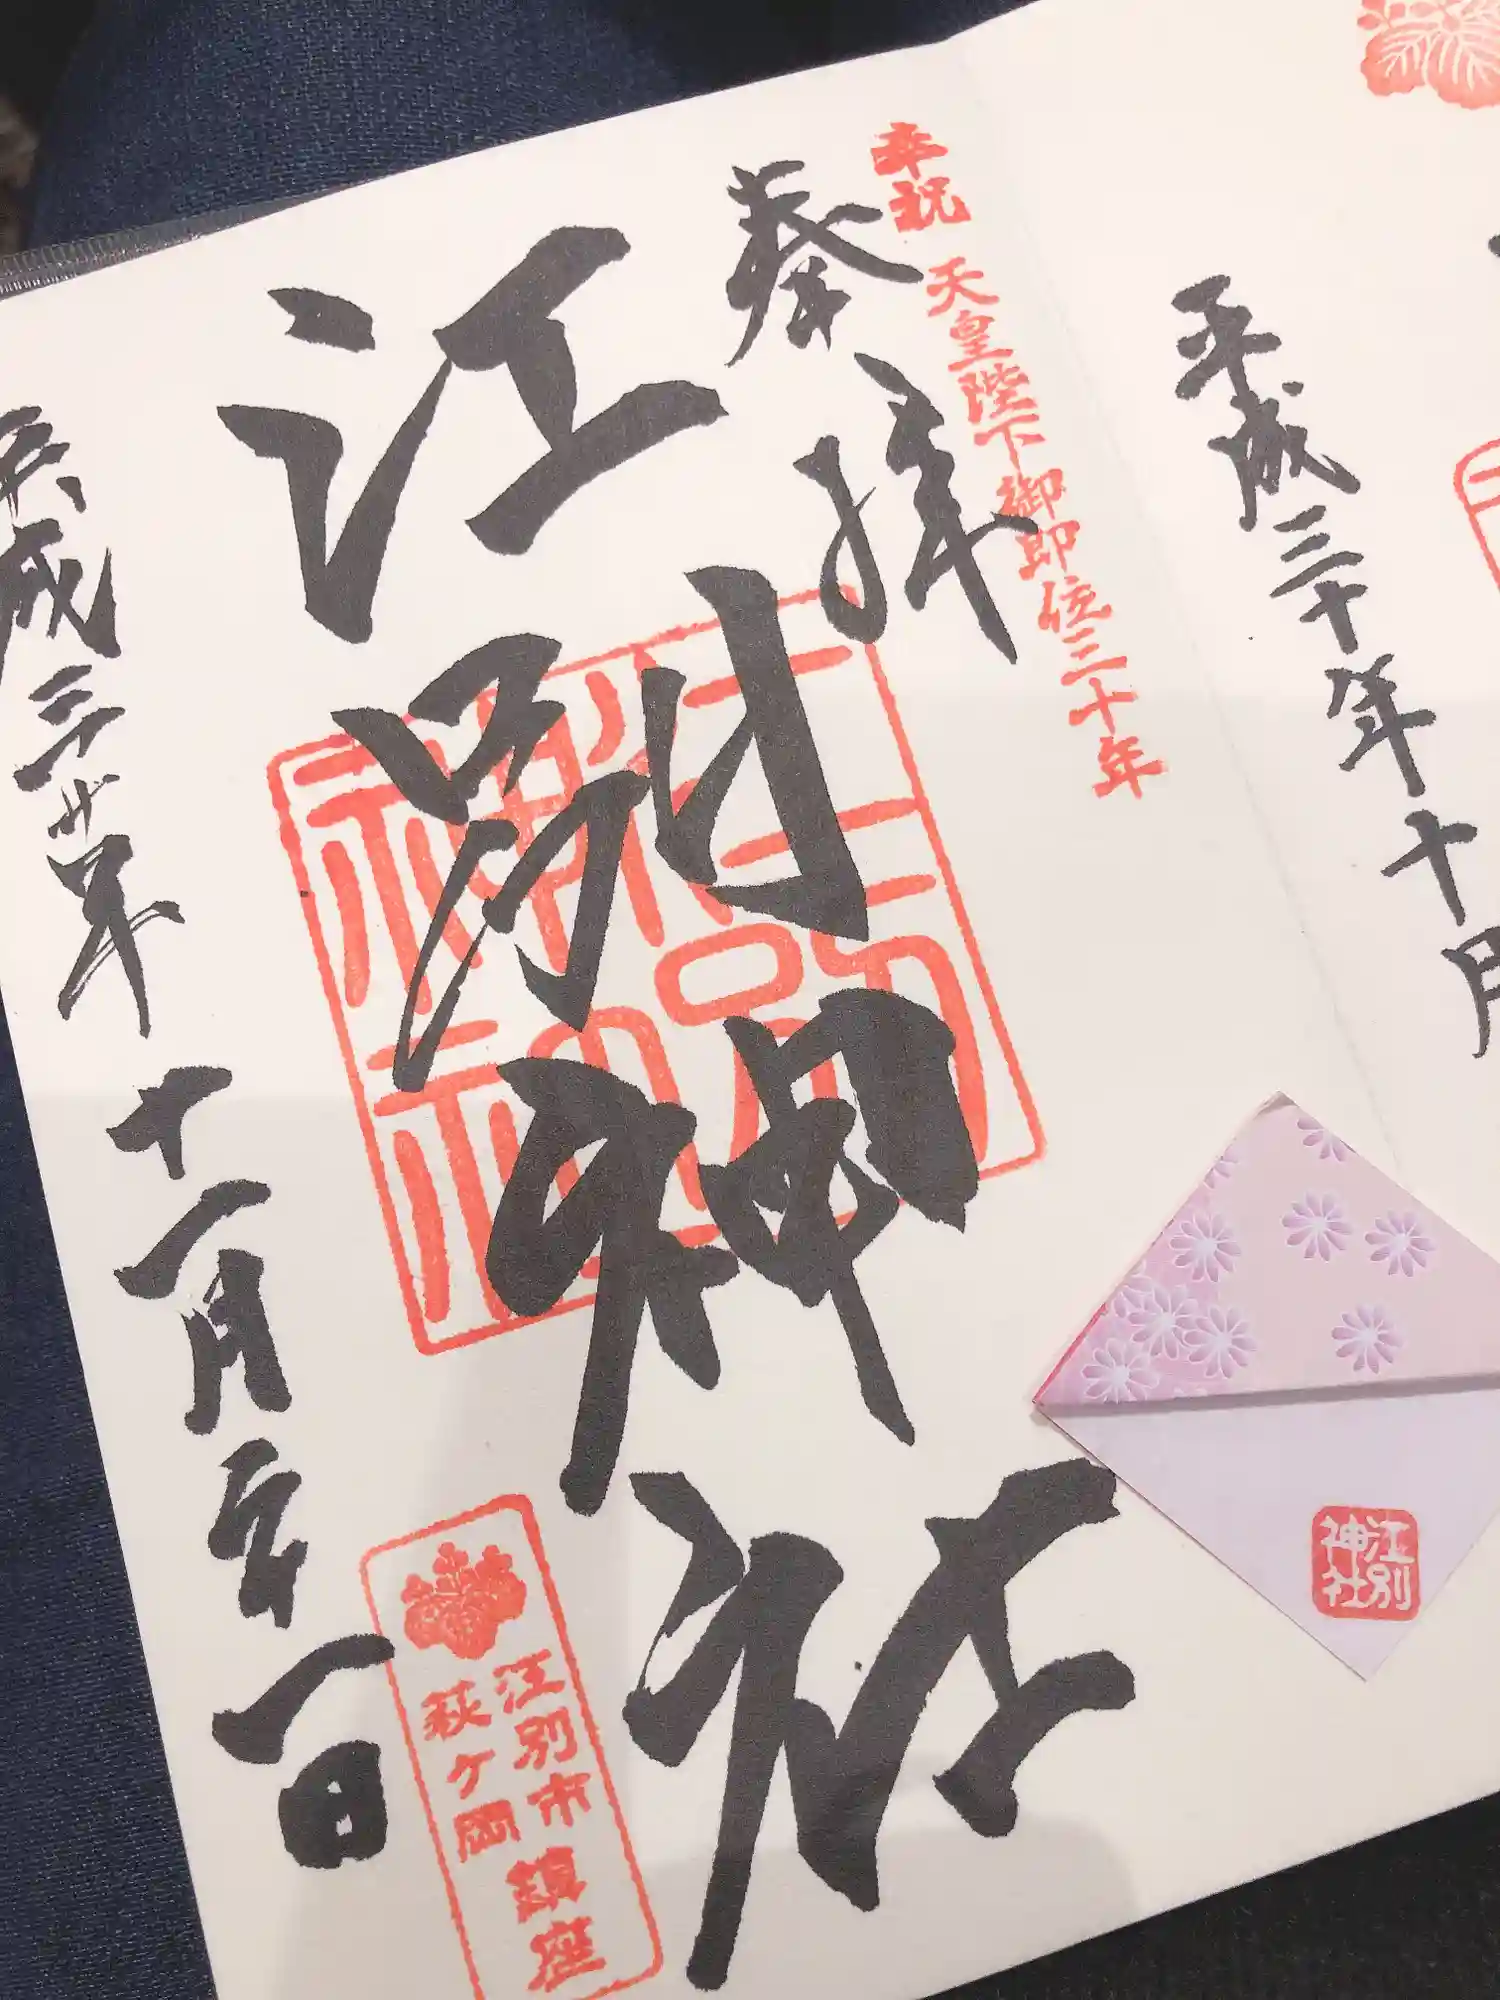 平成三十年十月
奉祝 天皇陛下御即位三十年
奉拝
江別神社
平成三十年十一月二十一日
江別市鎮座
萩ヶ岡
江別
神社